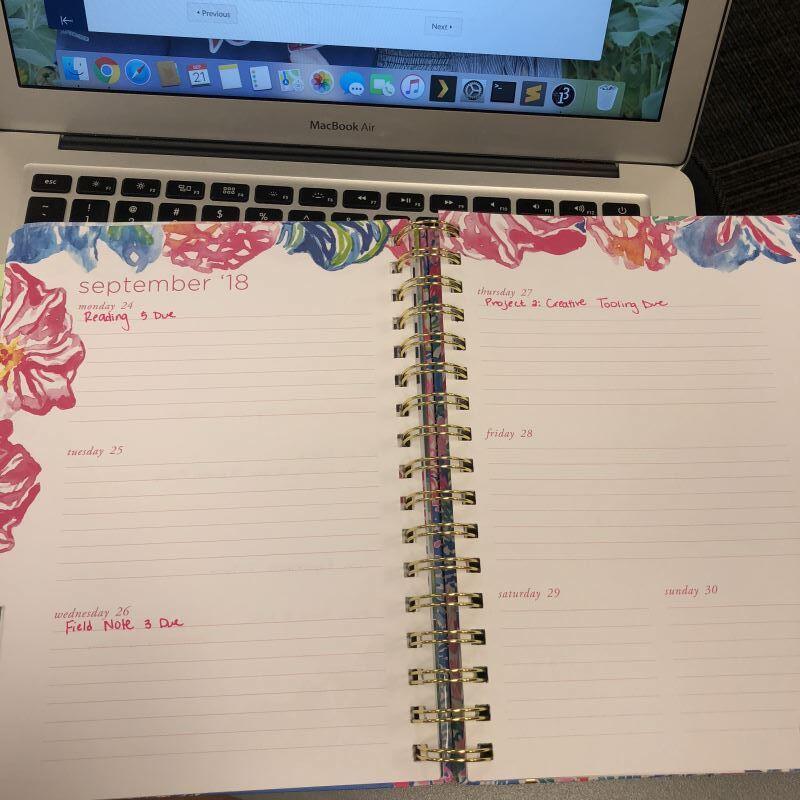 Previous
Next
SEP
21
MacBook Air
esc
F1
F2
F3
F4
F5
F6
F7
F8
F9
F10
F11
F12
~
!
@
#
$
%
^
&
september '18
monday 24
Reading 5 Due
tuesday 25
wednesday 26
Field Note 3 Due
thursday 27
Project 2: Creative Tooling Due
friday 28
saturday 29
sunday 30